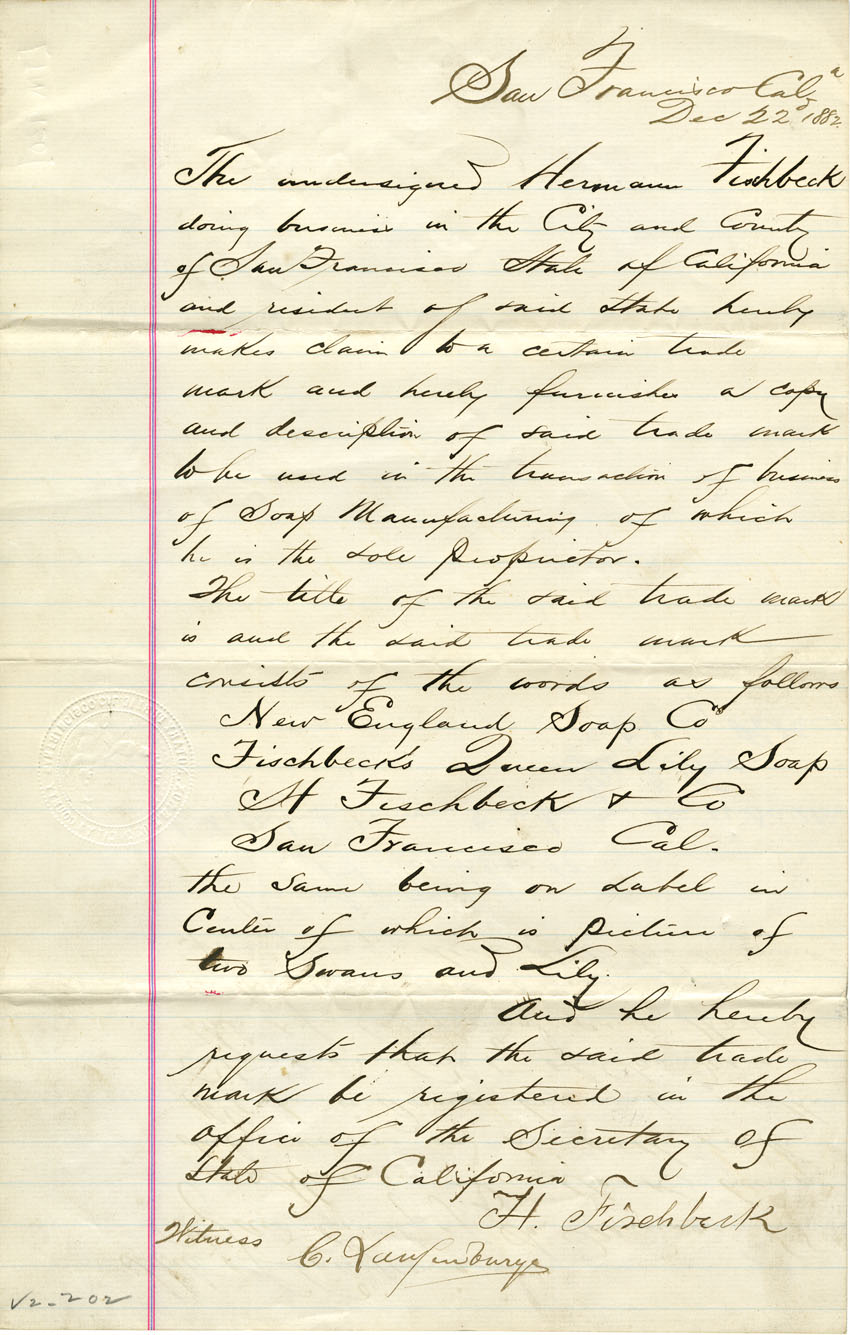 San Francisco Cala
Dec 22d 1882.
The undersigned Hermann Fischbeck
doing business in the City and County
of San Francisco State of California
and resident of said State hereby
makes claim to a certain trade
mark and hereby furnishes a copy
and description of said trade mark
to be used in the transaction of business
of Soap Manufacturing of which
he is the sole proprietor.
The title of the said trade mark
is and the said trade mark
consists of the words as follows
New England Soap Co
Fischbeck's Queen Lily Soap
H Fischbeck & Co
San Francisco Cal.
the same being on Label in
Center of which is picture of
two Swans and Lily.
And he hereby
requests that the said trade
mark be registered in the
office of the Secretary of
State of California
H. Fischbeck
Witness
C.
V2-202